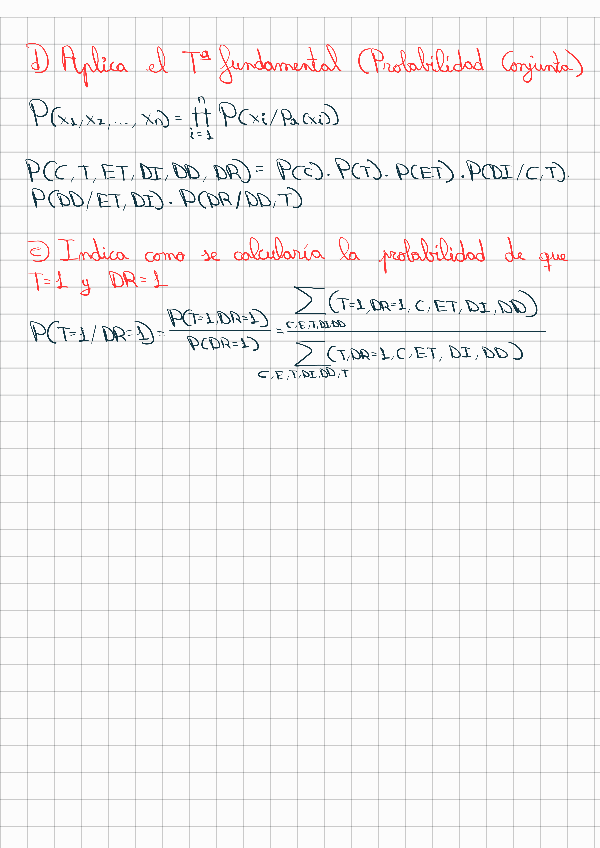 1) Aplica el Tª fundamental (Probabilidad Conjunta)
P(x1, x2, ..., xn) = ∏ i=1 n P(xi/Pa(xi))
P(C, T, ET, DI, DD, DR) = P(C) · P(T) · P(ET) · P(DI/C,T) ·
P(DD/ET, DI) · P(DR/DD, T)
c) Indica como se calcularía la probabilidad de que
T=1 y DR=1
P(T=1/DR=1) = P(T=1, DR=1) / P(DR=1) = ∑ C,E,T,DI,DD (T=1, DR=1, C, ET, DI, DD) / ∑ C,E,T,DI,DD,T (T, DR=1, C, ET, DI, DD)